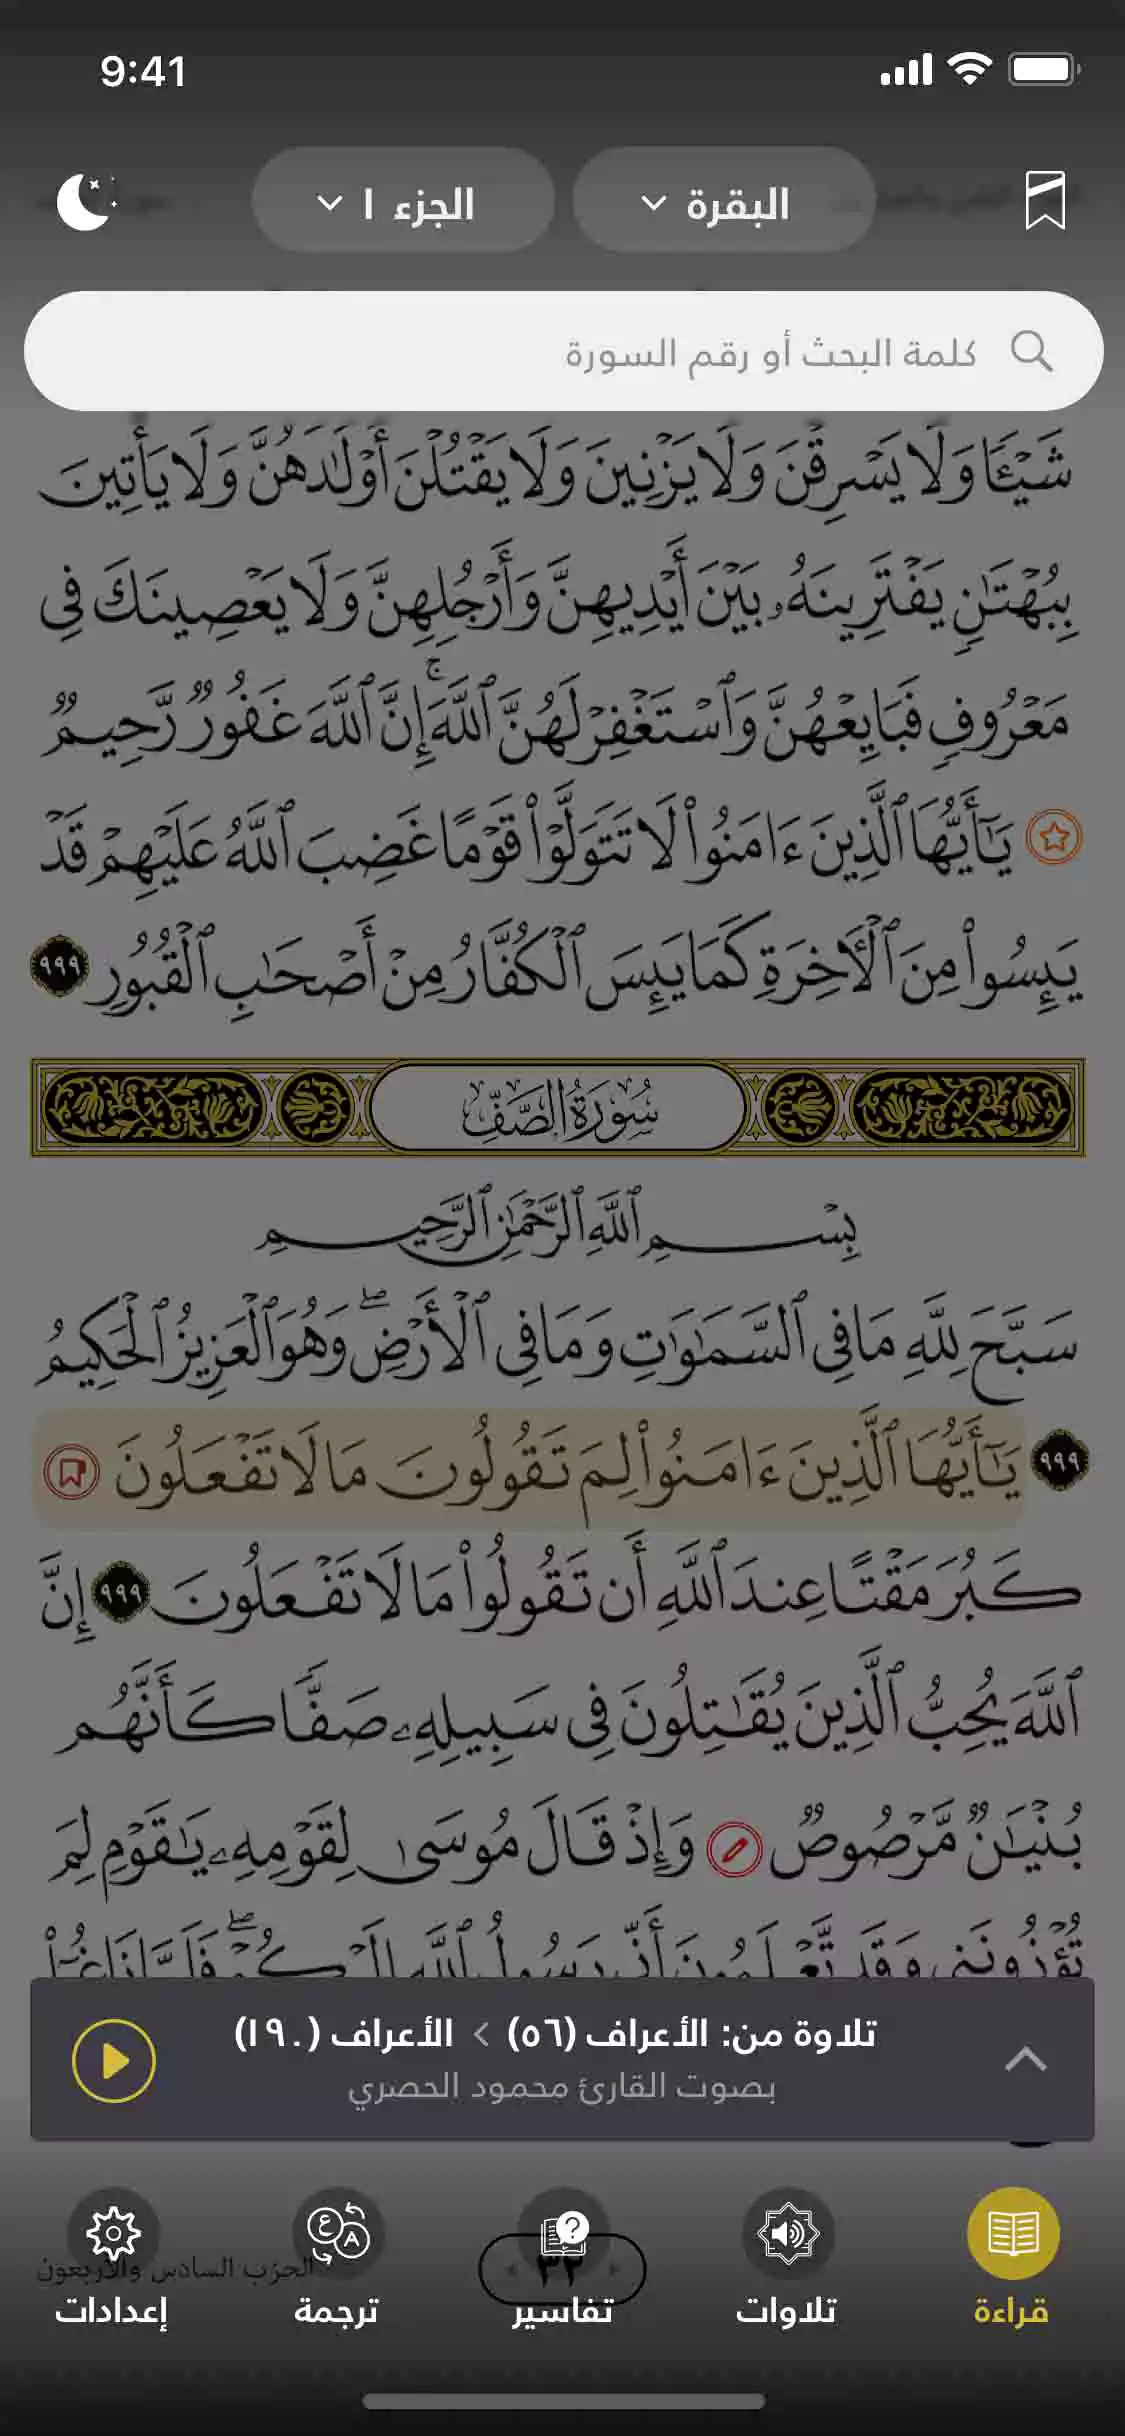 9:41
البقرة
الجزء ١
كلمة البحث أو رقم السورة
شَيْـًٔا وَلَا يَسْرِقْنَ وَلَا يَزْنِينَ وَلَا يَقْتُلْنَ أَوْلَٰدَهُنَّ وَلَا يَأْتِينَ
بِبُهْتَٰنٍ يَفْتَرِينَهُۥ بَيْنَ أَيْدِيهِنَّ وَأَرْجُلِهِنَّ وَلَا يَعْصِينَكَ فِى
مَعْرُوفٍ فَبَايِعْهُنَّ وَٱسْتَغْفِرْ لَهُنَّ ٱللَّهَ ۚ إِنَّ ٱللَّهَ غَفُورٌ رَّحِيمٌ
يَٰٓأَيُّهَا ٱلَّذِينَ ءَامَنُوا۟ لَا تَتَوَلَّوْا۟ قَوْمًا غَضِبَ ٱللَّهُ عَلَيْهِمْ قَدْ
يَئِسُوا۟ مِنَ ٱلْءَاخِرَةِ كَمَا يَئِسَ ٱلْكُفَّارُ مِنْ أَصْحَٰبِ ٱلْقُبُورِ ٩٩٩
سُورَةُ الصَّفِّ
بِسْمِ ٱللَّهِ ٱلرَّحْمَٰنِ ٱلرَّحِيمِ
سَبَّحَ لِلَّهِ مَا فِى ٱلسَّمَٰوَٰتِ وَمَا فِى ٱلْأَرْضِ ۖ وَهُوَ ٱلْعَزِيزُ ٱلْحَكِيمُ
٩٩٩ يَٰٓأَيُّهَا ٱلَّذِينَ ءَامَنُوا۟ لِمَ تَقُولُونَ مَا لَا تَفْعَلُونَ
كَبُرَ مَقْتًا عِندَ ٱللَّهِ أَن تَقُولُوا۟ مَا لَا تَفْعَلُونَ ٩٩٩ إِنَّ
ٱللَّهَ يُحِبُّ ٱلَّذِينَ يُقَٰتِلُونَ فِى سَبِيلِهِۦ صَفًّا كَأَنَّهُم
بُنْيَٰنٌ مَّرْصُوصٌ وَإِذْ قَالَ مُوسَىٰ لِقَوْمِهِۦ يَٰقَوْمِ لِمَ
تُؤْذُونَنِى وَقَد تَّعْلَمُونَ أَنِّى رَسُولُ ٱللَّهِ إِلَيْكُمْ ۖ فَلَمَّا زَاغُوٓا۟
تلاوة من: الأعراف (٥٦) > الأعراف (١٩٠)
بصوت القارئ محمود الحصري
٣٢
الحزب السادس والأربعون
قراءة
تلاوات
تفاسير
ترجمة
إعدادات